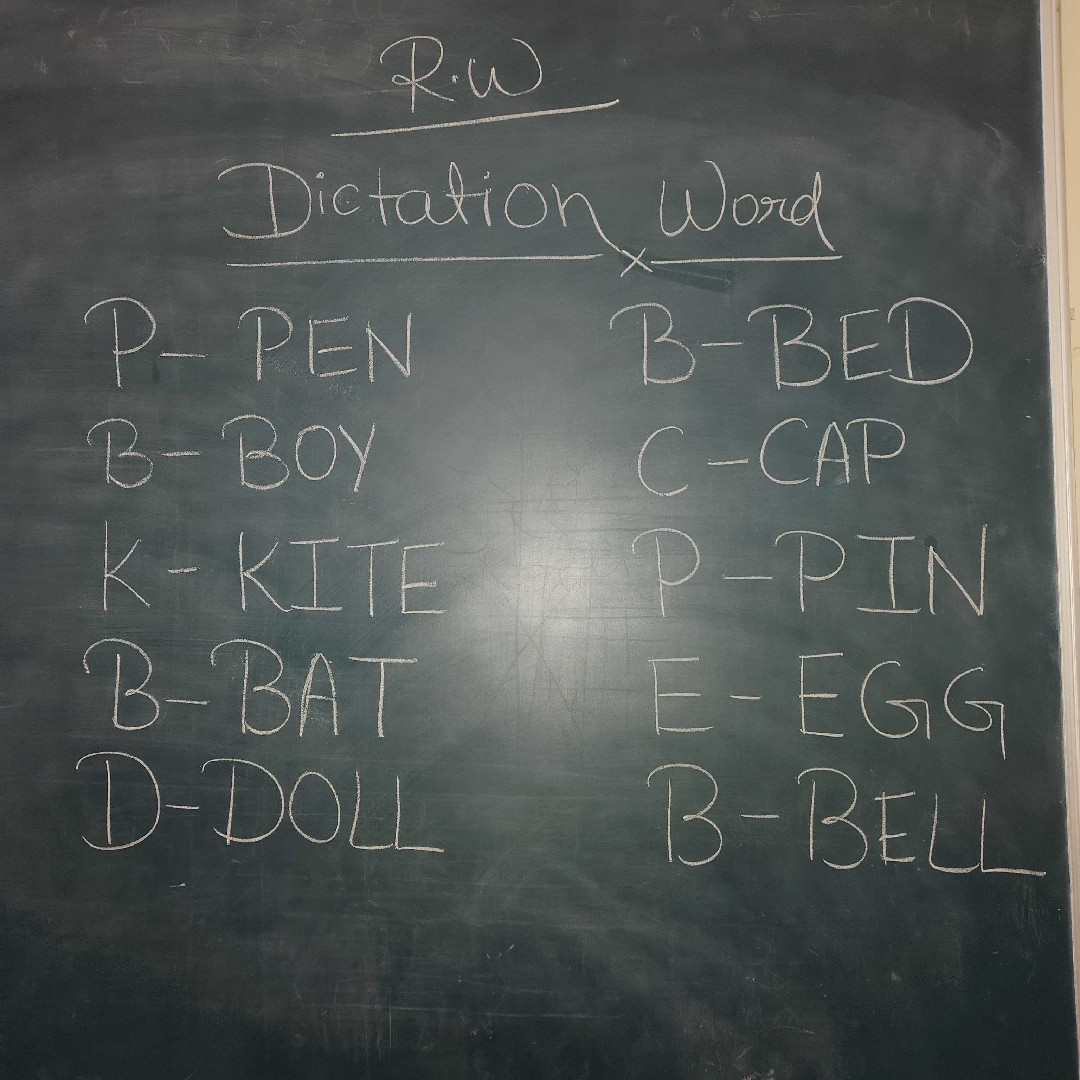 R.W
Dictation Word
P- PEN
B- BOY
K- KITE
B- BAT
D- DOLL
B- BED
C- CAP
P- PIN
E- EGG
B- BELL